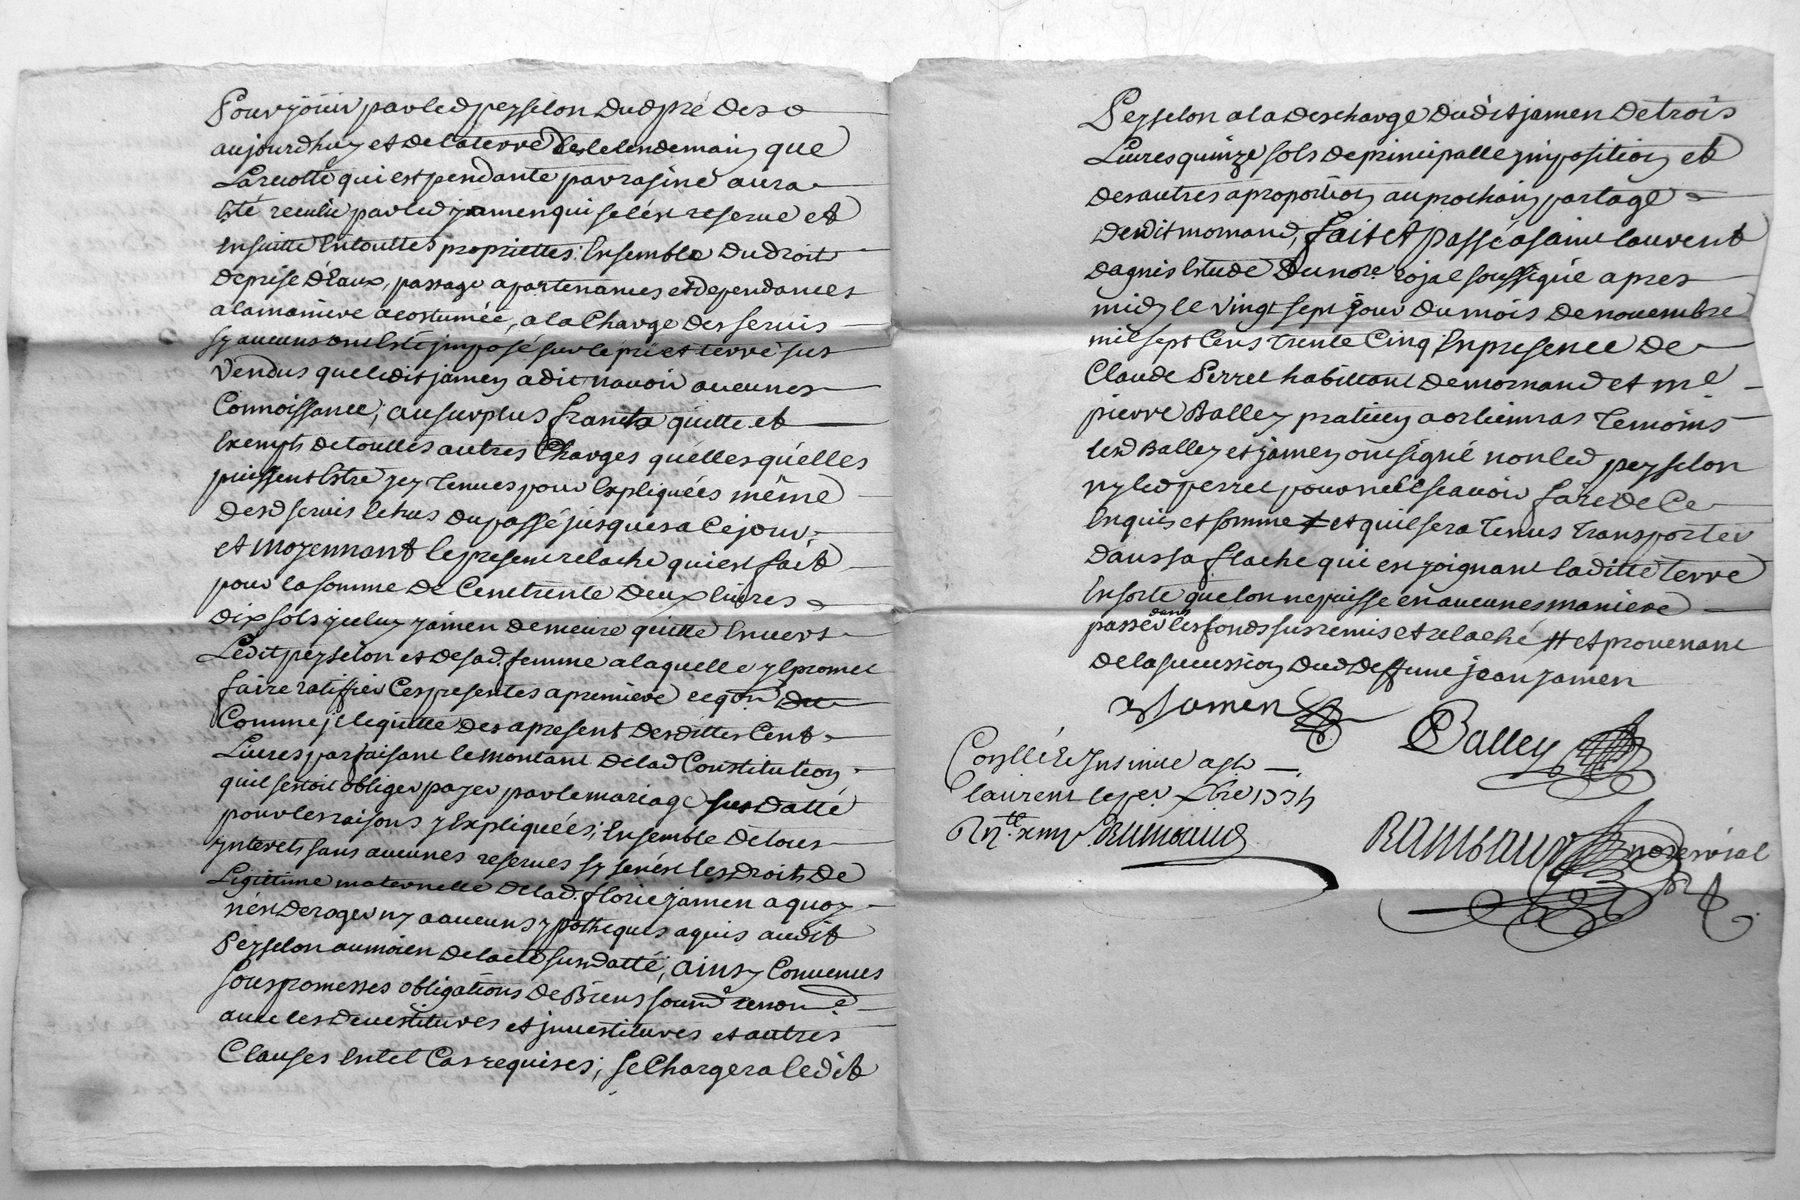 Pour jouir par led peyselon dud pré des
aujourdhuy et de la terre des le lendemain que
La recolte qui est pendante par rasine aura
Eté receulie par led jamen qui se lest reserve et
Ensuitte En toutte propriettes Ensemble du droit
de prise d'Eaux, passage apartenances et dependances
a la maniere acostumée, a la Charge des servis
sy aucuns ont Eté jmposé sur le pré et terre sus
Vendus que ledit jamen a dit navoir aucunes
Connoissance; au surplus franche quitte et
Exempts de touttes autres Charges quélles quélles
puissent Estre jcy tenues pour Expliquées même
desd servis Echus du passé jusques a Ce jour;
et moyennant le present relache qui est fait
pour la somme de Cent trente deux livres
dix sols jceluy jamen demeure quitte Envers
Ledit peyselon et de sad. femme a laquelle yl promet
faire ratiffier Ces presentes a premiere reqon
Comme jl le quitte des apresent desdittes Cent
Livres parfaisant le montant de lad Constitution
quil sestoit obliger payer par le mariage sus datté
pour les raisons y Expliquées; Ensemble de tous
ynterets sans aucunes reserves sy Ce nest les droits de
Legittime maternelle de lad. florie jamen a quoy
nest deroger ny a aucuns ypotheques aquis audit
Peyselon au moien de lacte sus datté, ainsy Convenues
sous promesses obligations de Biens soumd renond
avec les devestitures et jnvestitures et autres
Clauses En tel Cas requises; se Chargera ledit
Peyselon a la descharge dudit jamen de trois
Livres quinze sols de principalle jmposition et
des autres a proportion au prochain partage
dudit mornand, fait et passé a saint laurent
dagnis Etude du nore roial soussigné apres
midy le vingt sept jour du mois de novembre
mil sept Cens trente Cinq En presence de
Claude Perret habittant de mornand et me
pierre Balley praticien a orlienas temoins
led Balley et jamen ont signé non led peyselon
ny led perret pour ne le scavoir faire de Ce
Enquis et somme ≠ et quil sera tenus transporter
dans sa flache qui est joignant laditte terre
En sorte que lon ne puisse en aucunes maniere
dans
passer les fonds sus remis et relaché # et provenant
de la sucession dud deffunt jean jamen
Jamen
Balley
Conllé et Jnsinué a st
laurent le per xbre 1735
Rambaud
Rambaud nore roial